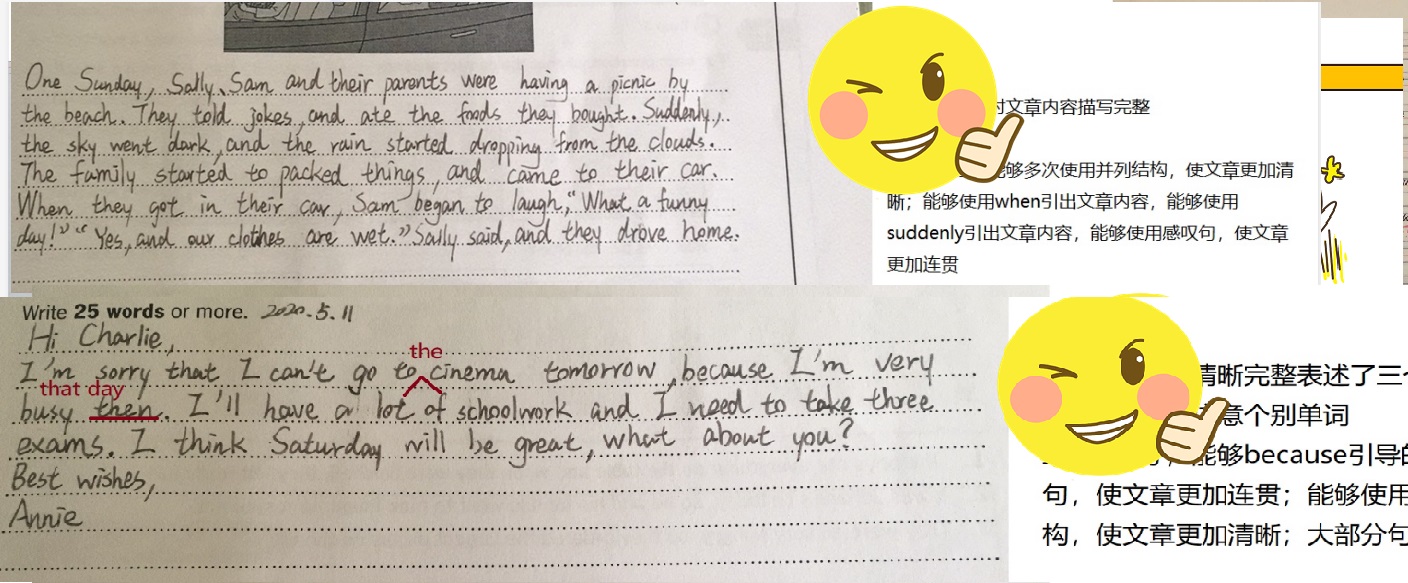 One Sunday, Sally, Sam and their parents were having a picnic by
the beach. They told jokes, and ate the foods they bought. Suddenly,
the sky went dark, and the rain started dropping from the clouds.
The family started to packed things, and came to their car.
When they got in their car, Sam began to laugh, "What a funny
day!" "Yes, and our clothes are wet." Sally said, and they drove home.
对文章内容描写完整
能够多次使用并列结构，使文章更加清
晰；能够使用when引出文章内容，能够使用
suddenly引出文章内容，能够使用感叹句，使文章
更加连贯
Write 25 words or more. 2020.5.11
Hi Charlie,
the
I'm sorry that I can't go to cinema tomorrow, because I'm very
that day
busy then. I'll have a lot of schoolwork and I need to take three
exams. I think Saturday will be great, what about you?
Best wishes,
Annie
清晰完整表述了三个
意个别单词
能够because引导的
句，使文章更加连贯；能够使用
构，使文章更加清晰；大部分句